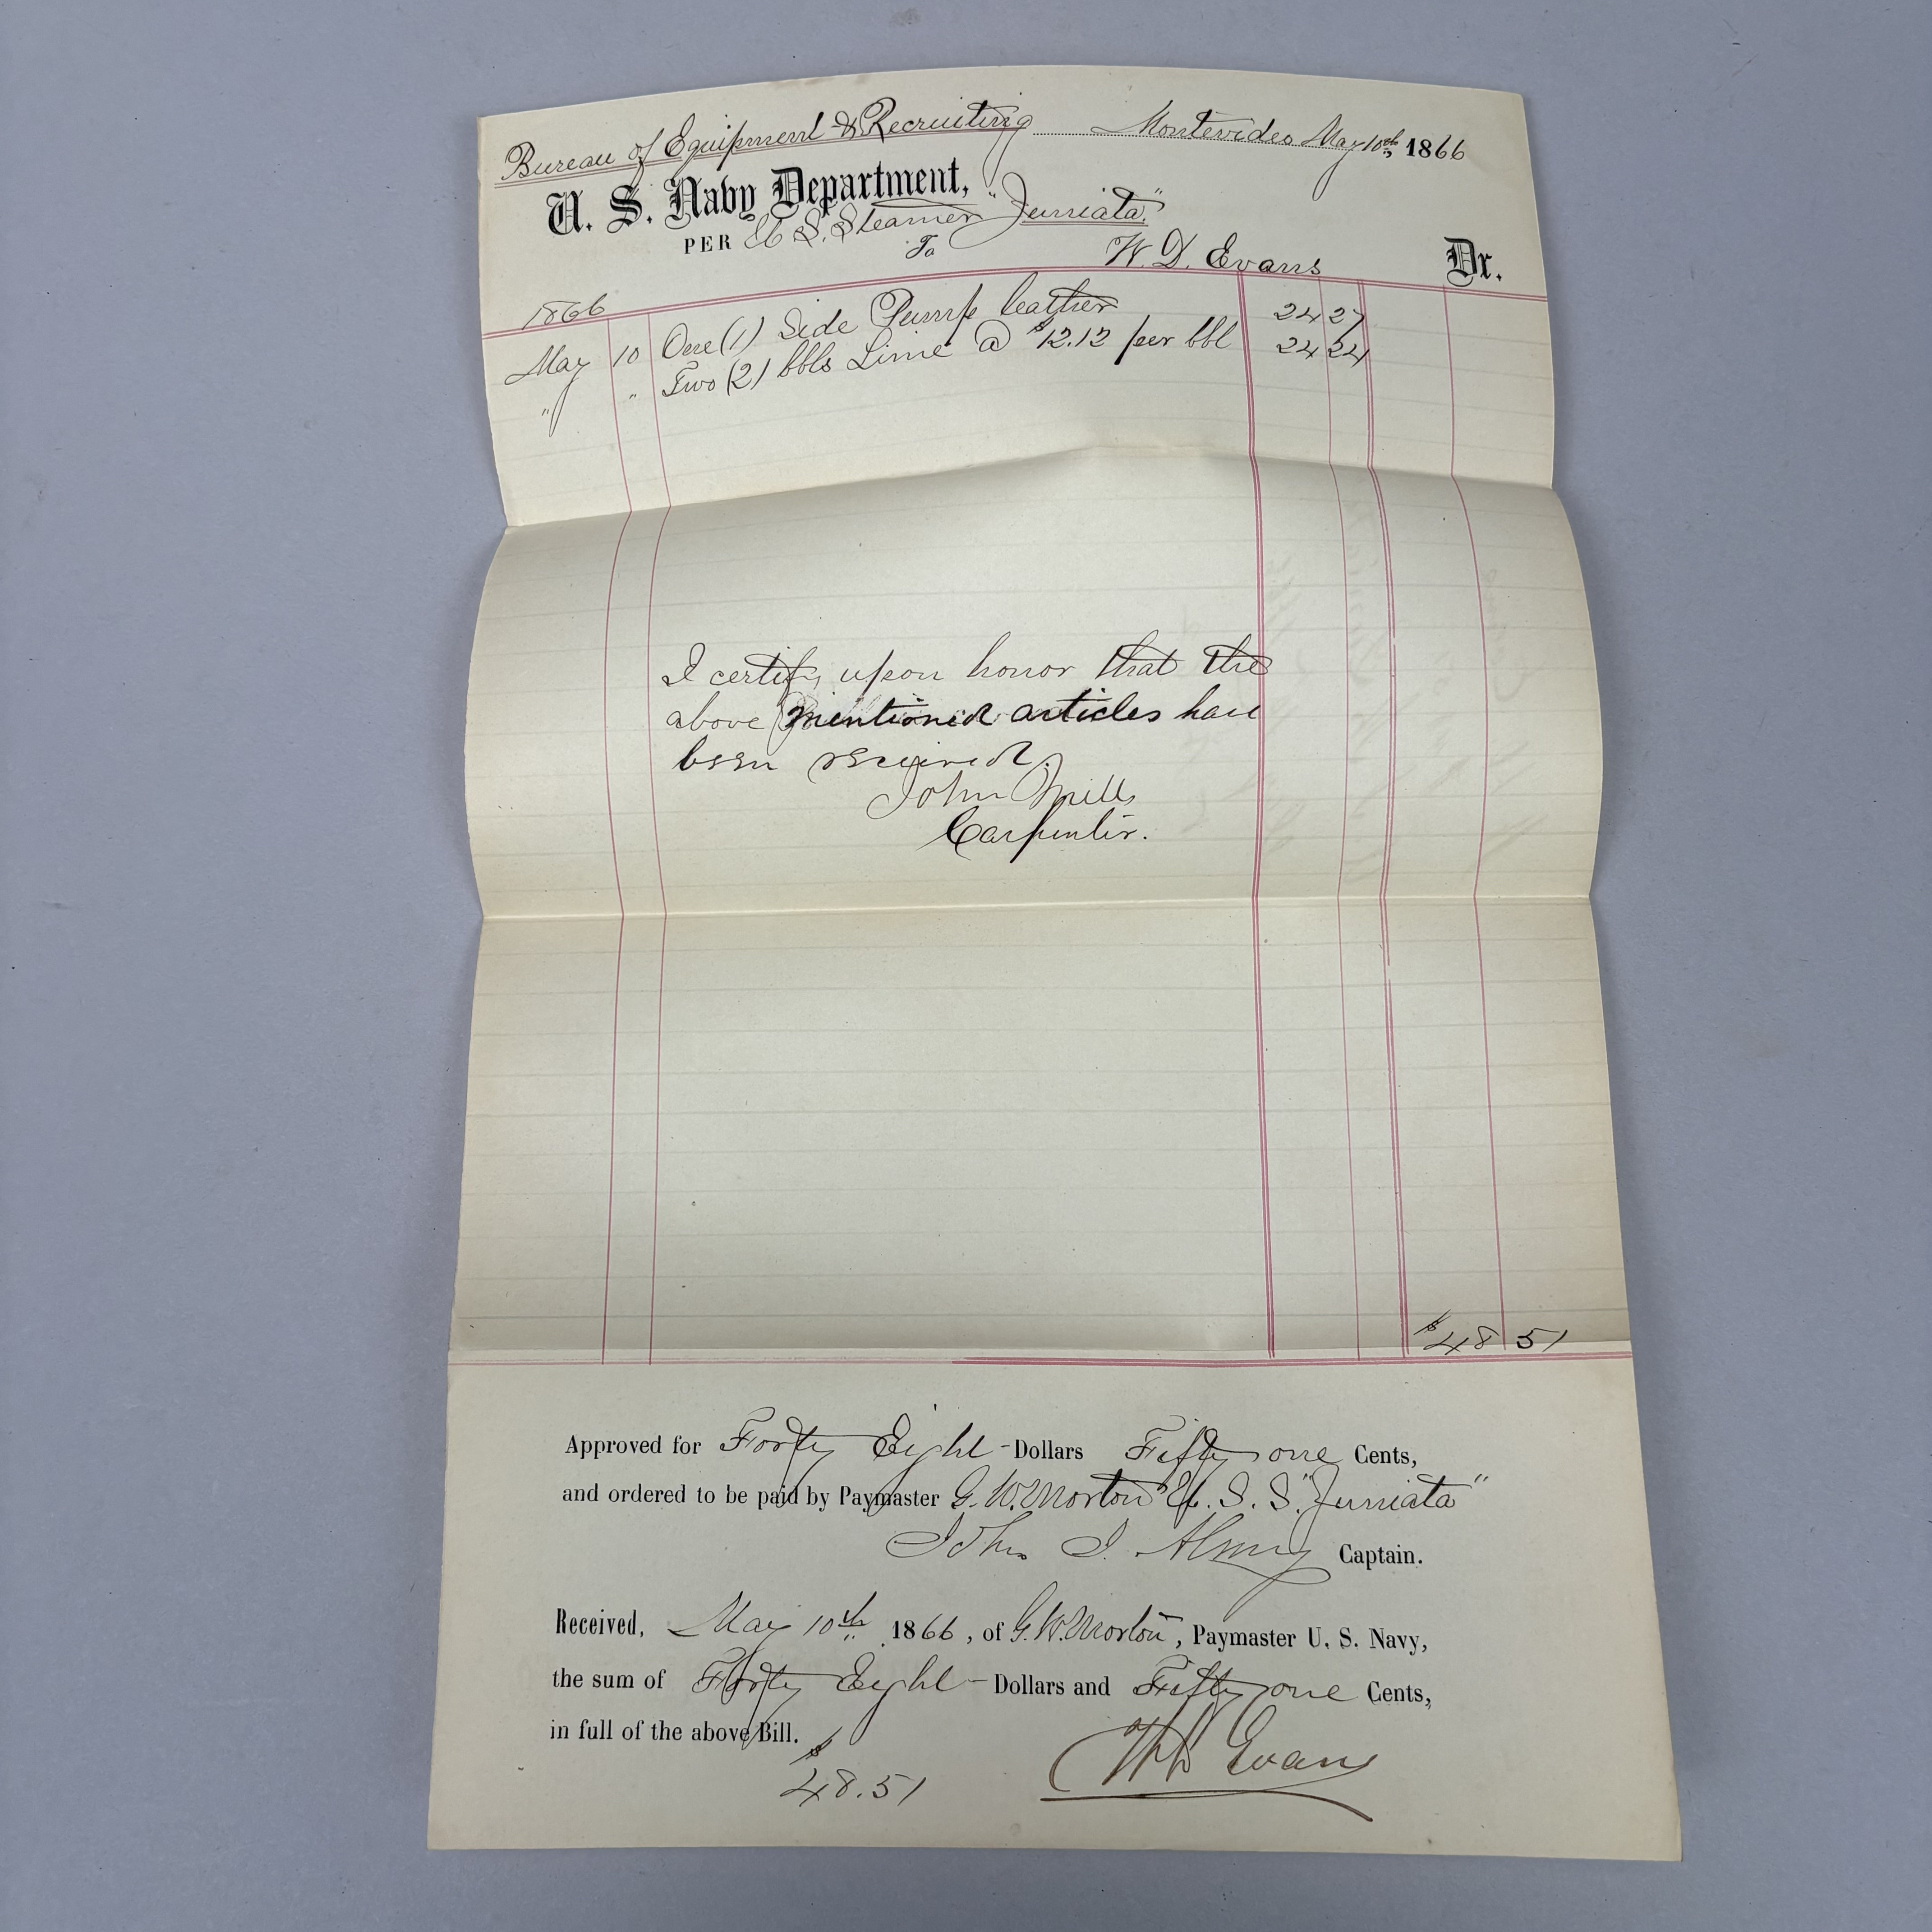 Bureau of Equipment & Recruiting Montevideo May 10th, 1866
U. S. Navy Department,
PER U. S. Steamer "Juniata."
To W. D. Evans Dr.
1866
May 10 One (1) Side Pump leather 24 27
" " Two (2) bbls Lime @ $12.12 per bbl 24 24
I certify upon honor that the
above mentioned articles have
been received.
John Mills
Carpenter.
$48 51
Approved for Forty Eight - Dollars Fifty one Cents,
and ordered to be paid by Paymaster G. W. Morton U. S. S. "Juniata"
John J. Almy Captain.
Received, May 10th 1866, of G. W. Morton, Paymaster U. S. Navy,
the sum of Forty Eight - Dollars and Fifty one Cents,
in full of the above Bill.
$48.51
W D Evans